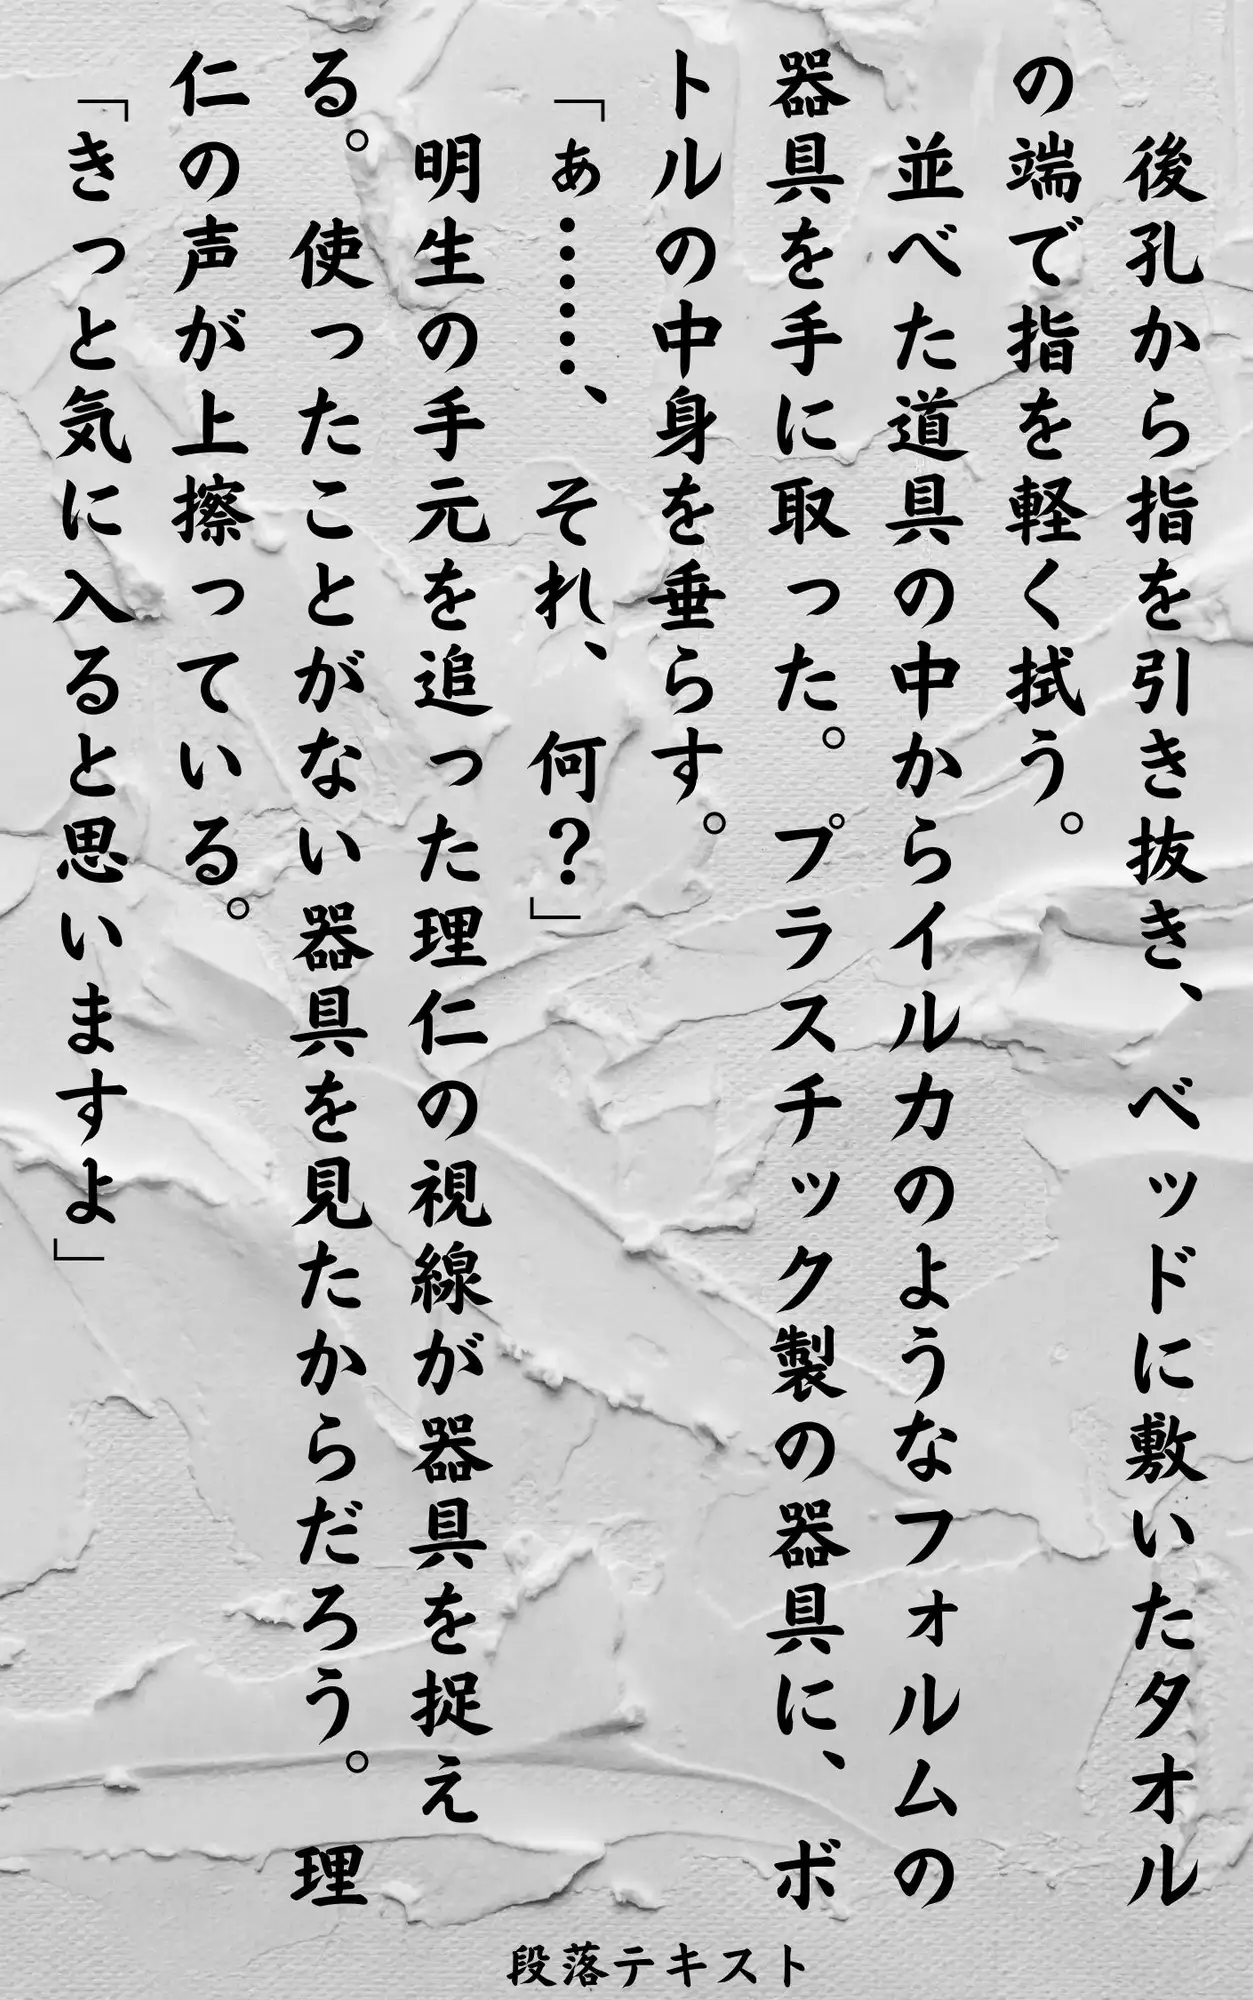 後孔から指を引き抜き、ベッドに敷いたタオル
の端で指を軽く拭う。
　並べた道具の中からイルカのようなフォルムの
器具を手に取った。プラスチック製の器具に、ボ
トルの中身を垂らす。
「ぁ……、それ、何？」
　明生の手元を追った理仁の視線が器具を捉え
る。使ったことがない器具を見たからだろう。理
仁の声が上擦っている。
「きっと気に入ると思いますよ」
段落テキスト